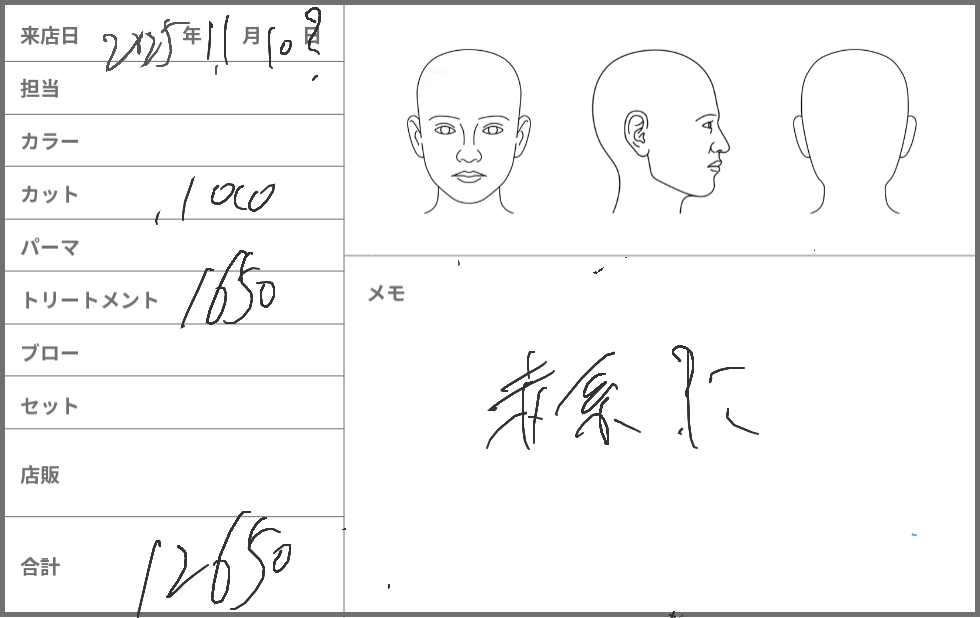 来店日 2025年11月10日
担当
カラー
カット 1000
パーマ
トリートメント 1650
ブロー
セット
店販
合計 12650
メモ
赤系